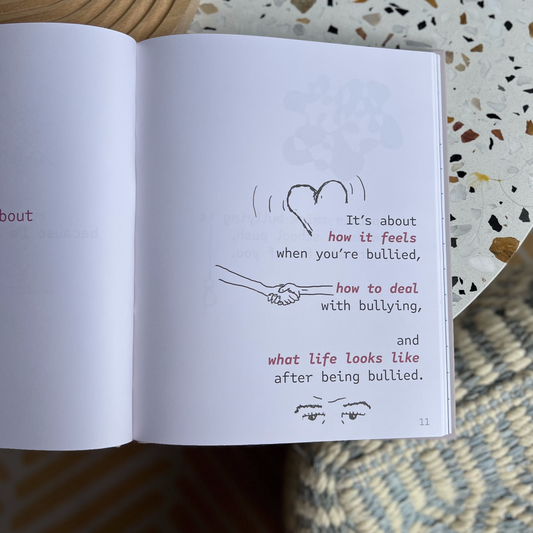 bout
It's about
how it feels
when you're bullied,
how to deal
with bullying,
and
what life looks like
after being bullied.
11